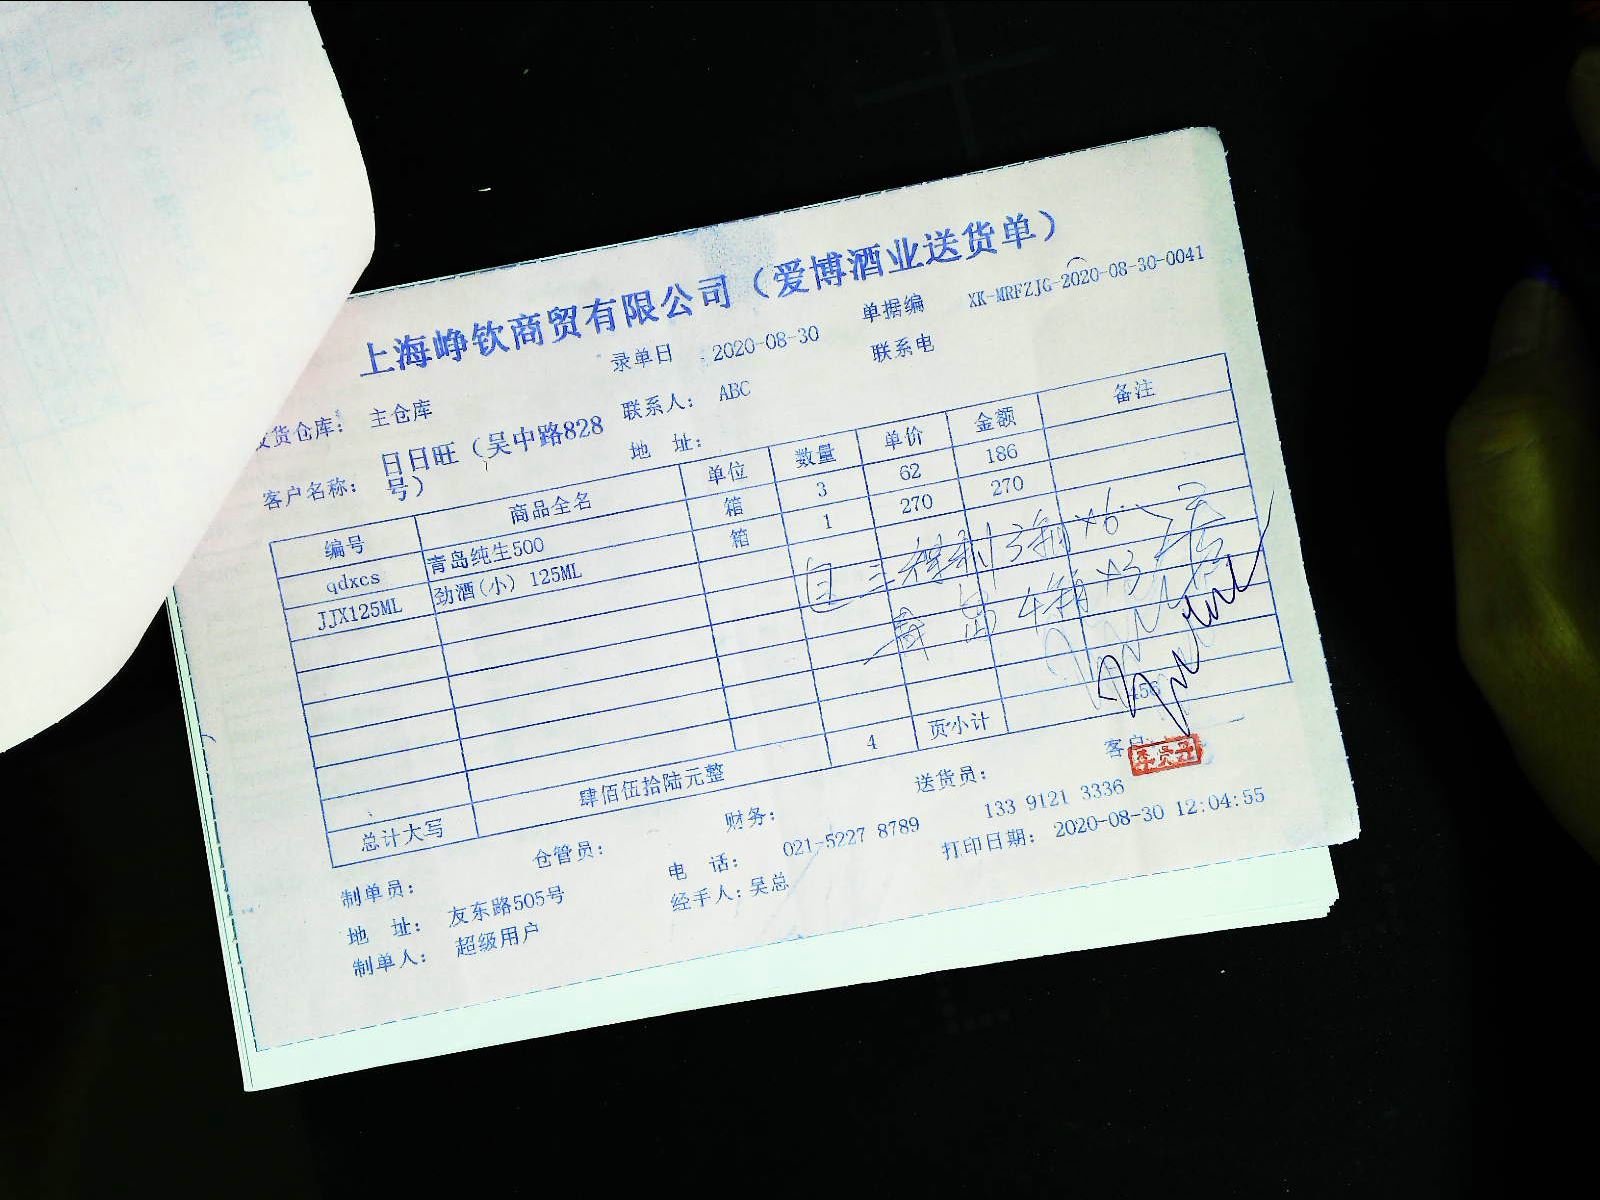 上海峥钦商贸有限公司（爱博酒业送货单）
录单日 : 2020-08-30 单据编 XK-MRFZJG-2020-08-30-0041
发货仓库: 主仓库 联系人: ABC 联系电
客户名称: 日日旺（吴中路828号） 地 址:
编号 商品全名 单位 数量 单价 金额 备注
qdxcs 青岛纯生500 箱 3 62 186
JJX125ML 劲酒(小) 125ML 箱 1 270 270
青岛
4 页小计 456
总计大写 肆佰伍拾陆元整
制单员: 仓管员: 财务: 送货员: 客户
地 址: 友东路505号 电 话: 021-5227 8789 133 9121 3336
制单人: 超级用户 经手人: 吴总 打印日期: 2020-08-30 12:04:55